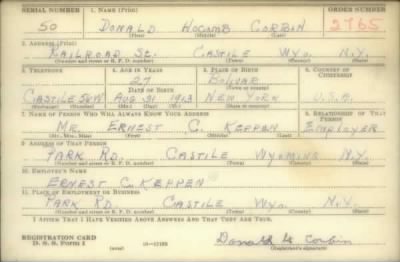 SERIAL NUMBER 1. NAME (Print) ORDER NUMBER
50 DONALD HOCOMB CORBIN 2765
(First) (Middle) (Last)
2. ADDRESS (Print)
RAILROAD St. CASTILE WYO. N.Y.
(Number and street or R. F. D. number) (Town) (County) (State)
3. TELEPHONE 4. AGE IN YEARS 5. PLACE OF BIRTH 6. COUNTRY OF CITIZENSHIP
27 BOLIVAR
DATE OF BIRTH (Town or county)
CASTILE AUG 31 1913 NEW YORK U.S.A.
(Exchange) (Number) (Mo.) (Day) (Yr.) (State or country)
7. NAME OF PERSON WHO WILL ALWAYS KNOW YOUR ADDRESS 8. RELATIONSHIP OF THAT PERSON
MR. ERNEST C. KEPPEN EMPLOYER
(Mr., Mrs., Miss) (First) (Middle) (Last)
9. ADDRESS OF THAT PERSON
PARK RD. CASTILE WYOMING N.Y.
(Number and street or R. F. D. number) (Town) (County) (State)
10. EMPLOYER'S NAME
ERNEST C. KEPPEN
11. PLACE OF EMPLOYMENT OR BUSINESS
PARK RD. CASTILE WYO. N.Y.
(Number and street or R. F. D. number) (Town) (County) (State)
I AFFIRM THAT I HAVE VERIFIED ABOVE ANSWERS AND THAT THEY ARE TRUE.
REGISTRATION CARD
D. S. S. Form 1 (over) Donald H Corbin
(Registrant's signature)